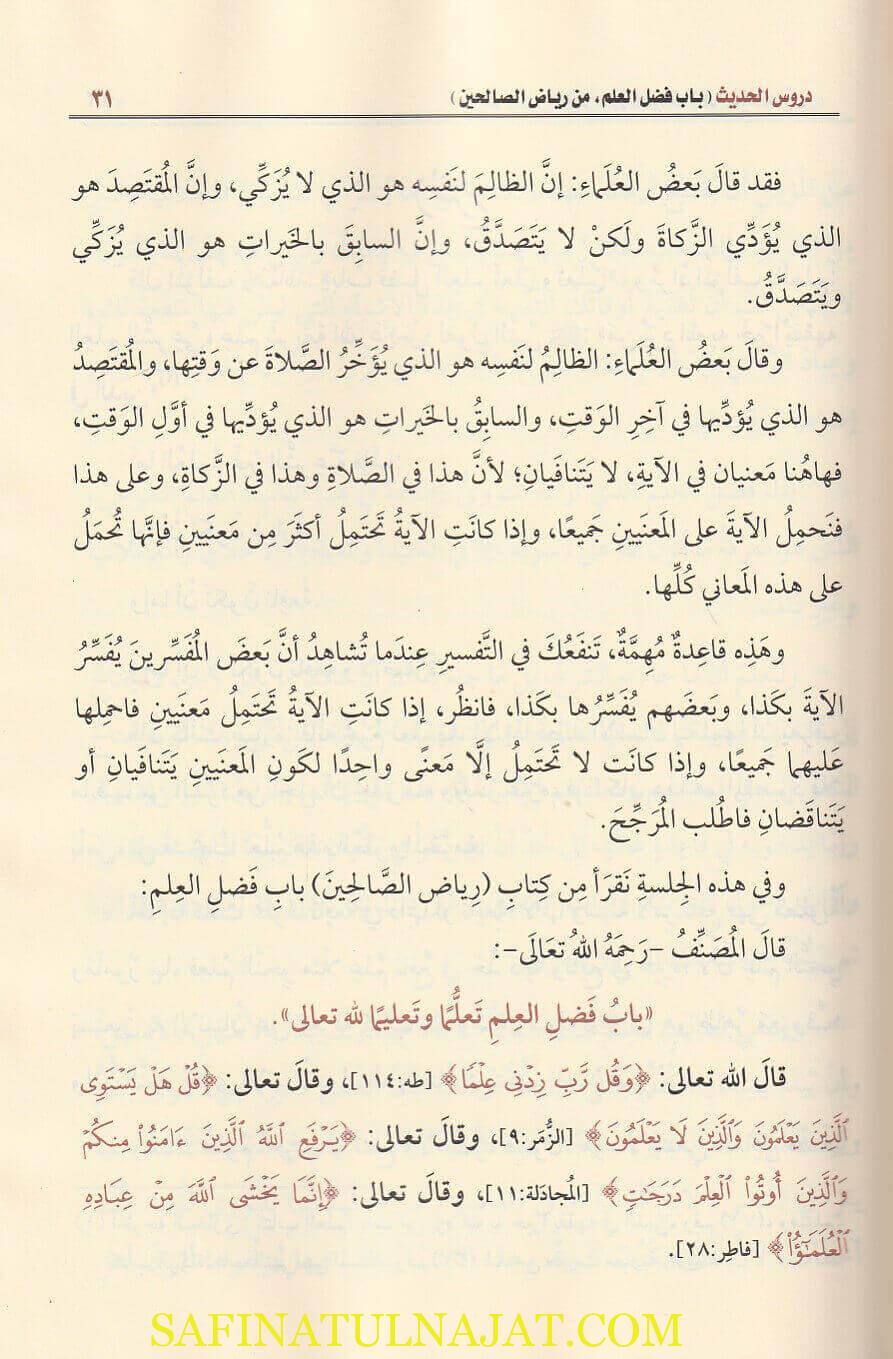 دروس الحديث (باب فضل العلم، من رياض الصالحين) ٣١
فقد قالَ بَعضُ العُلَماءِ: إنَّ الظالِمَ لنَفسِه هو الذي لا يُزَكِّي، وإنَّ المُقتَصِدَ هو
الذي يُؤَدِّي الزَّكاةَ ولَكنْ لا يَتَصَدَّقُ، وإنَّ السابِقَ بالخَيراتِ هو الذي يُزَكِّي
ويَتَصَدَّقُ.
وقالَ بَعضُ العُلَماءِ: الظالِمُ لنَفسِه هو الذي يُؤَخِّرُ الصَّلاةَ عن وَقتِها، والمُقتَصِدُ
هو الذي يُؤدِّيها في آخِرِ الوَقتِ، والسابِقُ بالخَيراتِ هو الذي يُؤدِّيها في أوَّلِ الوَقتِ،
فهاهُنا مَعنيان في الآيةِ، لا يَتَنافَيانِ؛ لأنَّ هذا في الصَّلاةِ وهذا في الزَّكاةِ، وعلى هذا
فنَحمِلُ الآيةَ على المَعنَيينِ جَميعًا، وإذا كانَتِ الآيةُ تَحتَمِلُ أكثَرَ مِن مَعنَيينِ فإنَّها تُحمَلُ
على هذه المَعاني كُلِّها.
وهَذِه قاعِدةٌ مُهِمَّةٌ، تَنفَعُكَ في التَّفسيرِ عِندَما تُشاهِدُ أنَّ بَعضَ المُفَسِّرينَ يُفَسِّرُ
الآيةَ بكَذا، وبَعضَهم يُفَسِّرُها بكَذا، فانظُر، إذا كانَتِ الآيةُ تَحتَمِلُ مَعنَيينِ فاحمِلها
عَليهما جَميعًا، وإذا كانَت لا تَحتَمِلُ إلَّا مَعنًى واحِدًا لكَونِ المَعنَيينِ يَتَنافَيانِ أو
يَتَناقَضانِ فاطلُب المُرَجِّحَ.
وفي هذه الجِلسةِ نَقرَأ مِن كِتابِ (رِياض الصَّالحِينَ) بابِ فَضلِ العِلمِ:
قالَ المُصَنِّفُ -رَحِمَهُ اللهُ تعَالَى-:
«بابُ فَضلِ العِلمِ تَعلُّمًا وتَعليمًا لله تعالى».
قالَ الله تعالى: ﴿وَقُل رَّبِّ زِدْنِى عِلْمًا﴾ [طه:١١٤]، وقالَ تعالى: ﴿قُلْ هَلْ يَسْتَوِى
ٱلَّذِينَ يَعْلَمُونَ وَٱلَّذِينَ لَا يَعْلَمُونَ﴾ [الزُّمَر:٩]، وقالَ تعالى: ﴿يَرْفَعِ ٱللَّهُ ٱلَّذِينَ ءَامَنُوا۟ مِنكُمْ
وَٱلَّذِينَ أُوتُوا۟ ٱلْعِلْمَ دَرَجَٰتٍ﴾ [المُجادَلة:١١]، وقالَ تعالى: ﴿إِنَّمَا يَخْشَى ٱللَّهَ مِنْ عِبَادِهِ
ٱلْعُلَمَٰٓؤُا۟﴾ [فاطِر:٢٨].
SAFINATULNAJAT.COM